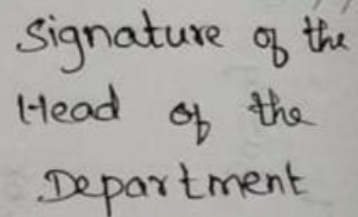 Signature of the
Head of the
Department